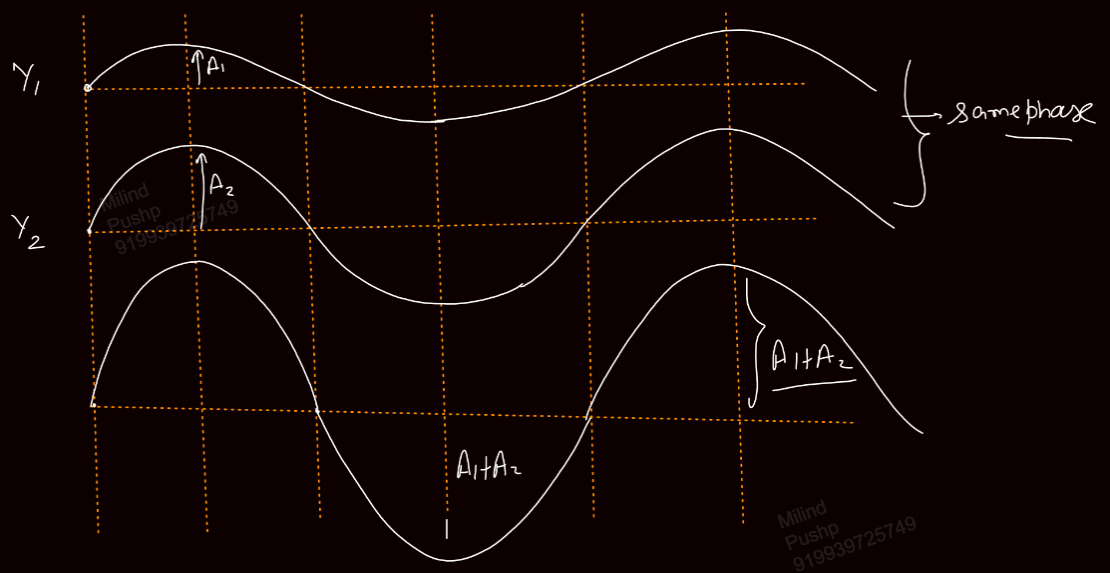 Y₁
A₁
same phase
A₂
Milind
Pushp
919939725749
Y₂
A₁+A₂
A₁+A₂
Milind
Pushp
919939725749